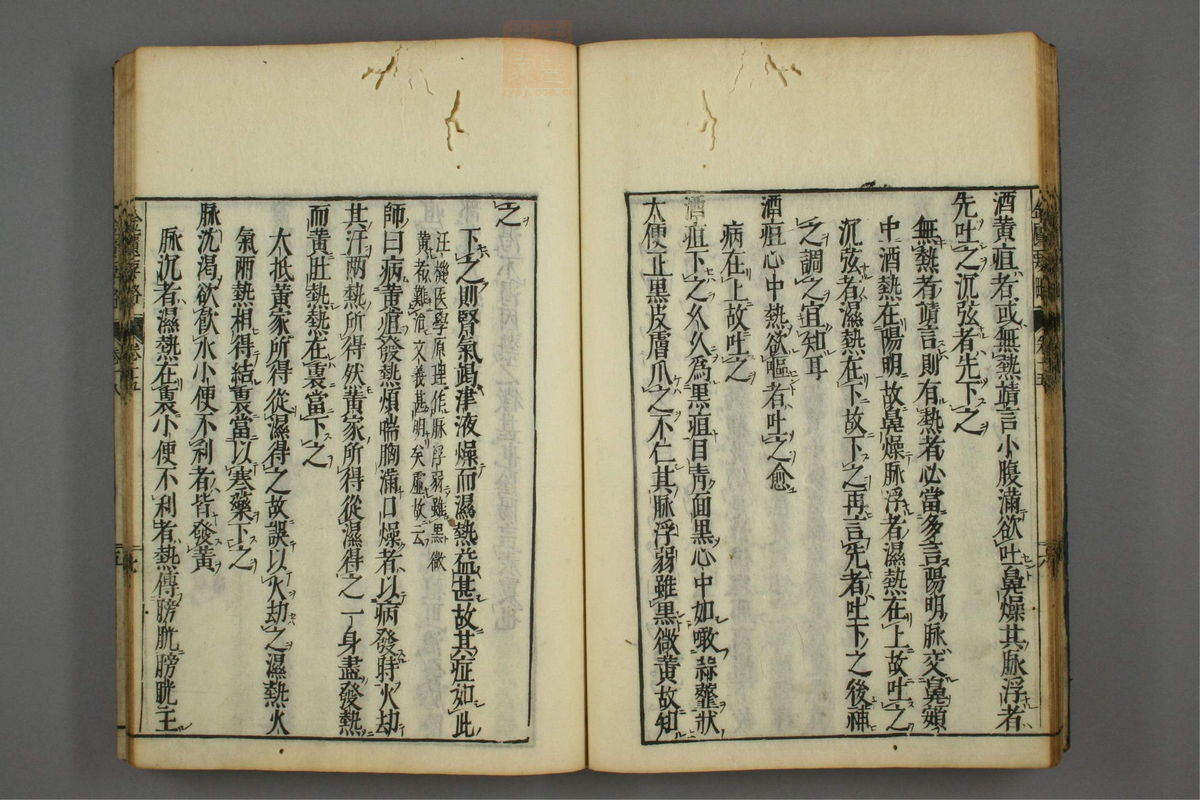 酒黄疸者或無熱靖言小腹滿欲吐鼻燥其脉浮者
先吐之沉弦者先下之
無熱者靖言則有熱者必當多言陽明脉交鼻頞
中酒熱在陽明故鼻燥脉浮者濕熱在上故吐之
沉弦者濕熱在下故下之再言先者吐下之後神
之調之宜知耳
酒疸心中熱欲嘔者吐之愈
病在上故吐之
酒疸下之久久爲黒疸目靑面黒心中如噉蒜虀狀
大便正黒皮膚爪之不仁其脉浮弱雖黒微黄故知
之
下之則腎氣竭津液燥而濕熱益甚故其症如此
汪機医學原理作脉浮弱雖黒微
黄者難治文義甚明矣虛故云
師曰病黄疸發熱煩喘胸滿口燥者以病發時火劫
其汗兩熱所得然黄家所得從濕得之一身盡發熱
而黄肚熱熱在裏當下之
大抵黄家所得從濕得之故誤以火劫之濕熱火
氣兩熱相得結裏當以寒藥下之
脉沉渴欲飮水小便不利者皆發黄
脉沉者濕熱在裏小便不利者熱傳膀胱膀胱主